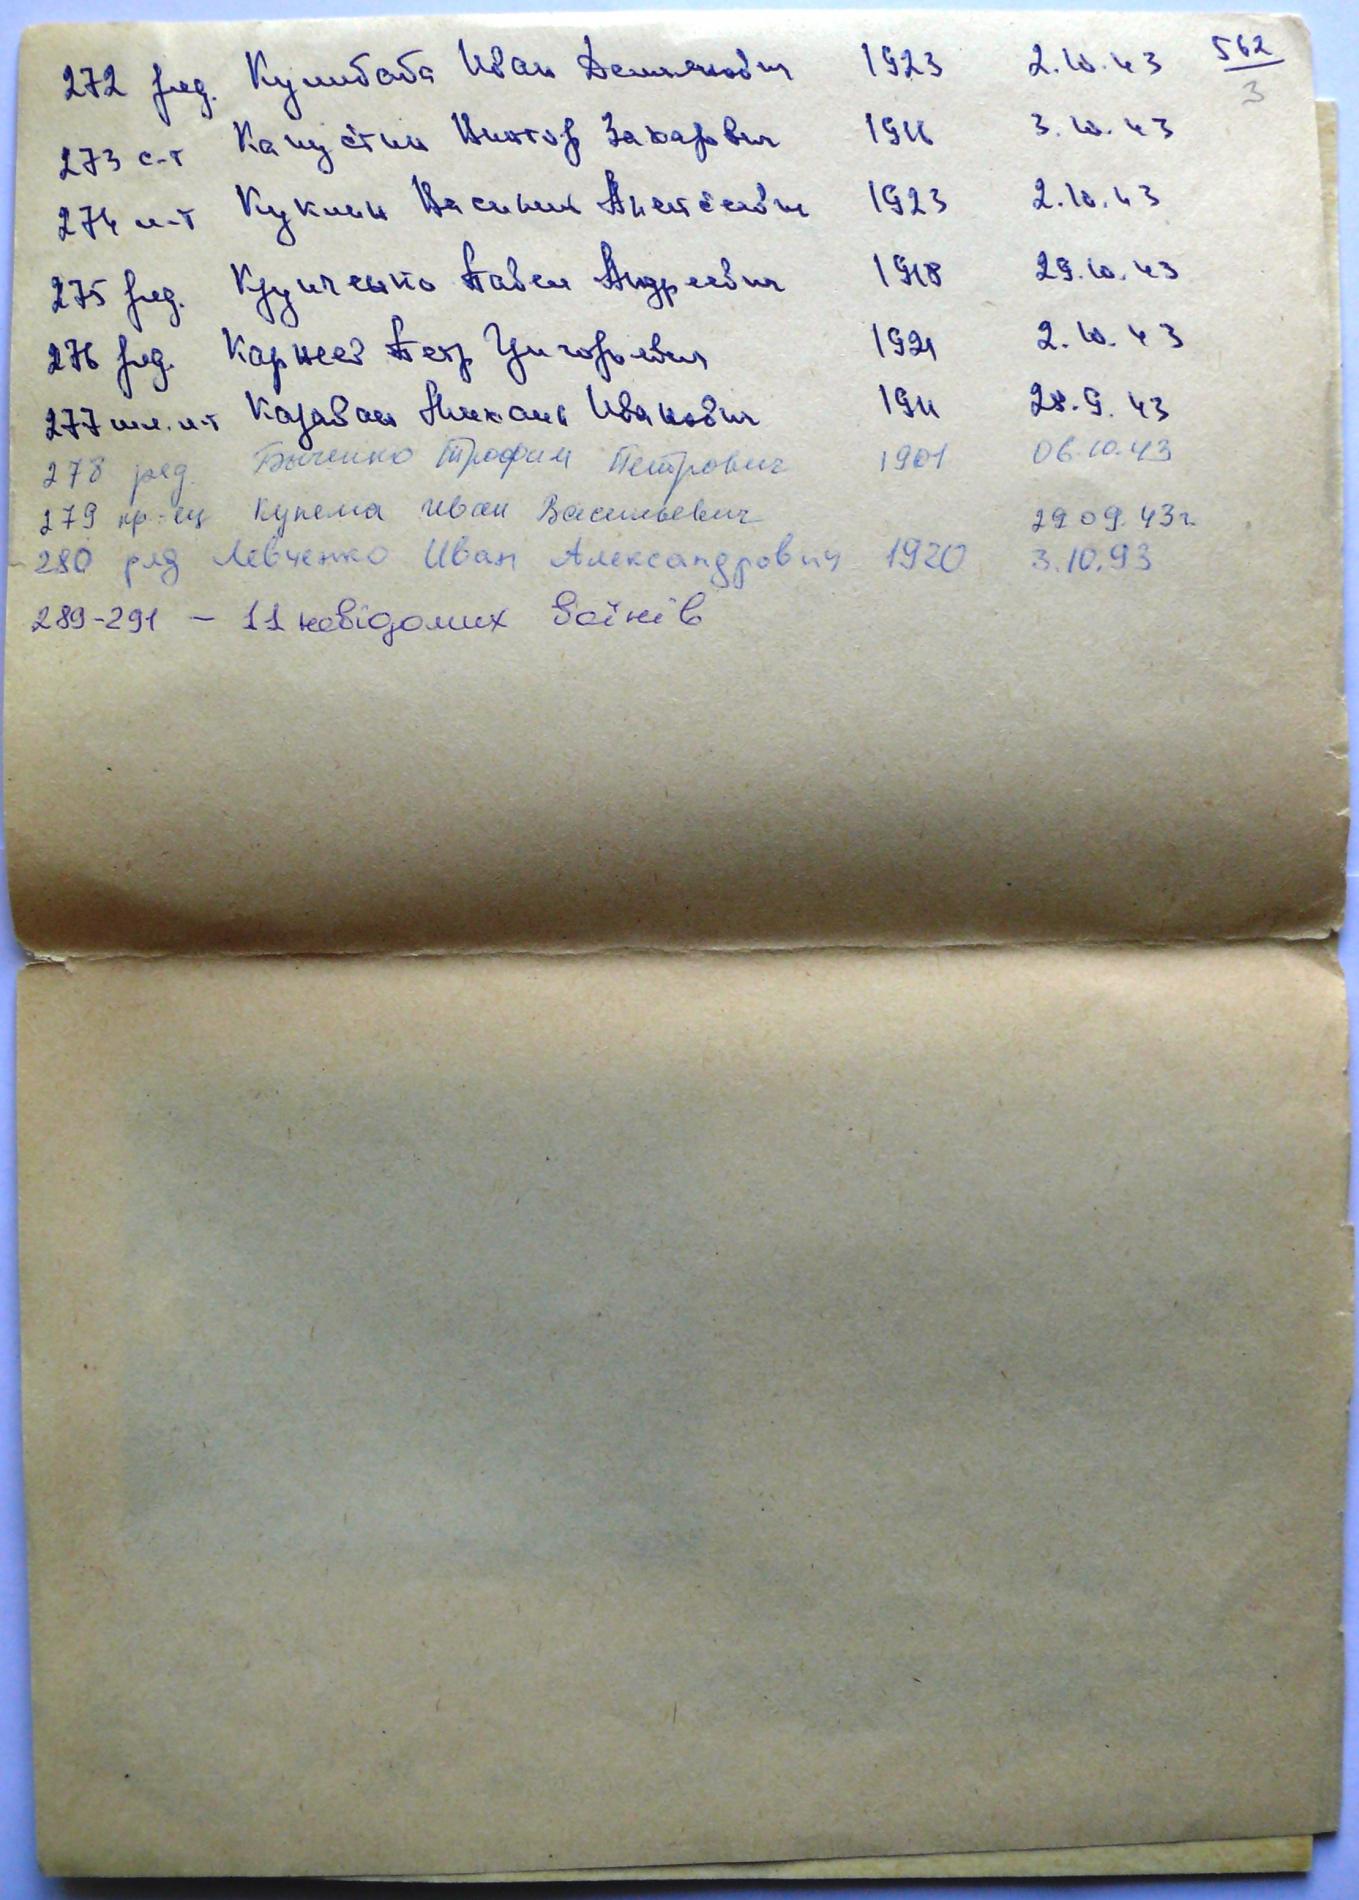 272 ряд. Кулибаба Иван Демьянович 1923 2.10.43 562/3
273 с-т Капустин Виктор Захарович 1916 3.10.43
274 л-т Куклин Василий Алексеевич 1923 2.10.43
275 ряд. Крупченко Павел Андреевич 1918 29.10.43
276 ряд. Каржев Петр Григорьевич 1921 2.10.43
277 мл. л-т Караван Михаил Иванович 1911 28.9.43
278 ряд. Быченко Трофим Петрович 1901 06.10.43
279 кр-ец Купема Иван Васильевич 29 09. 43г
280 ряд Левченко Иван Александрович 1920 3.10.93
289-291 – 11 невідомих воїнів